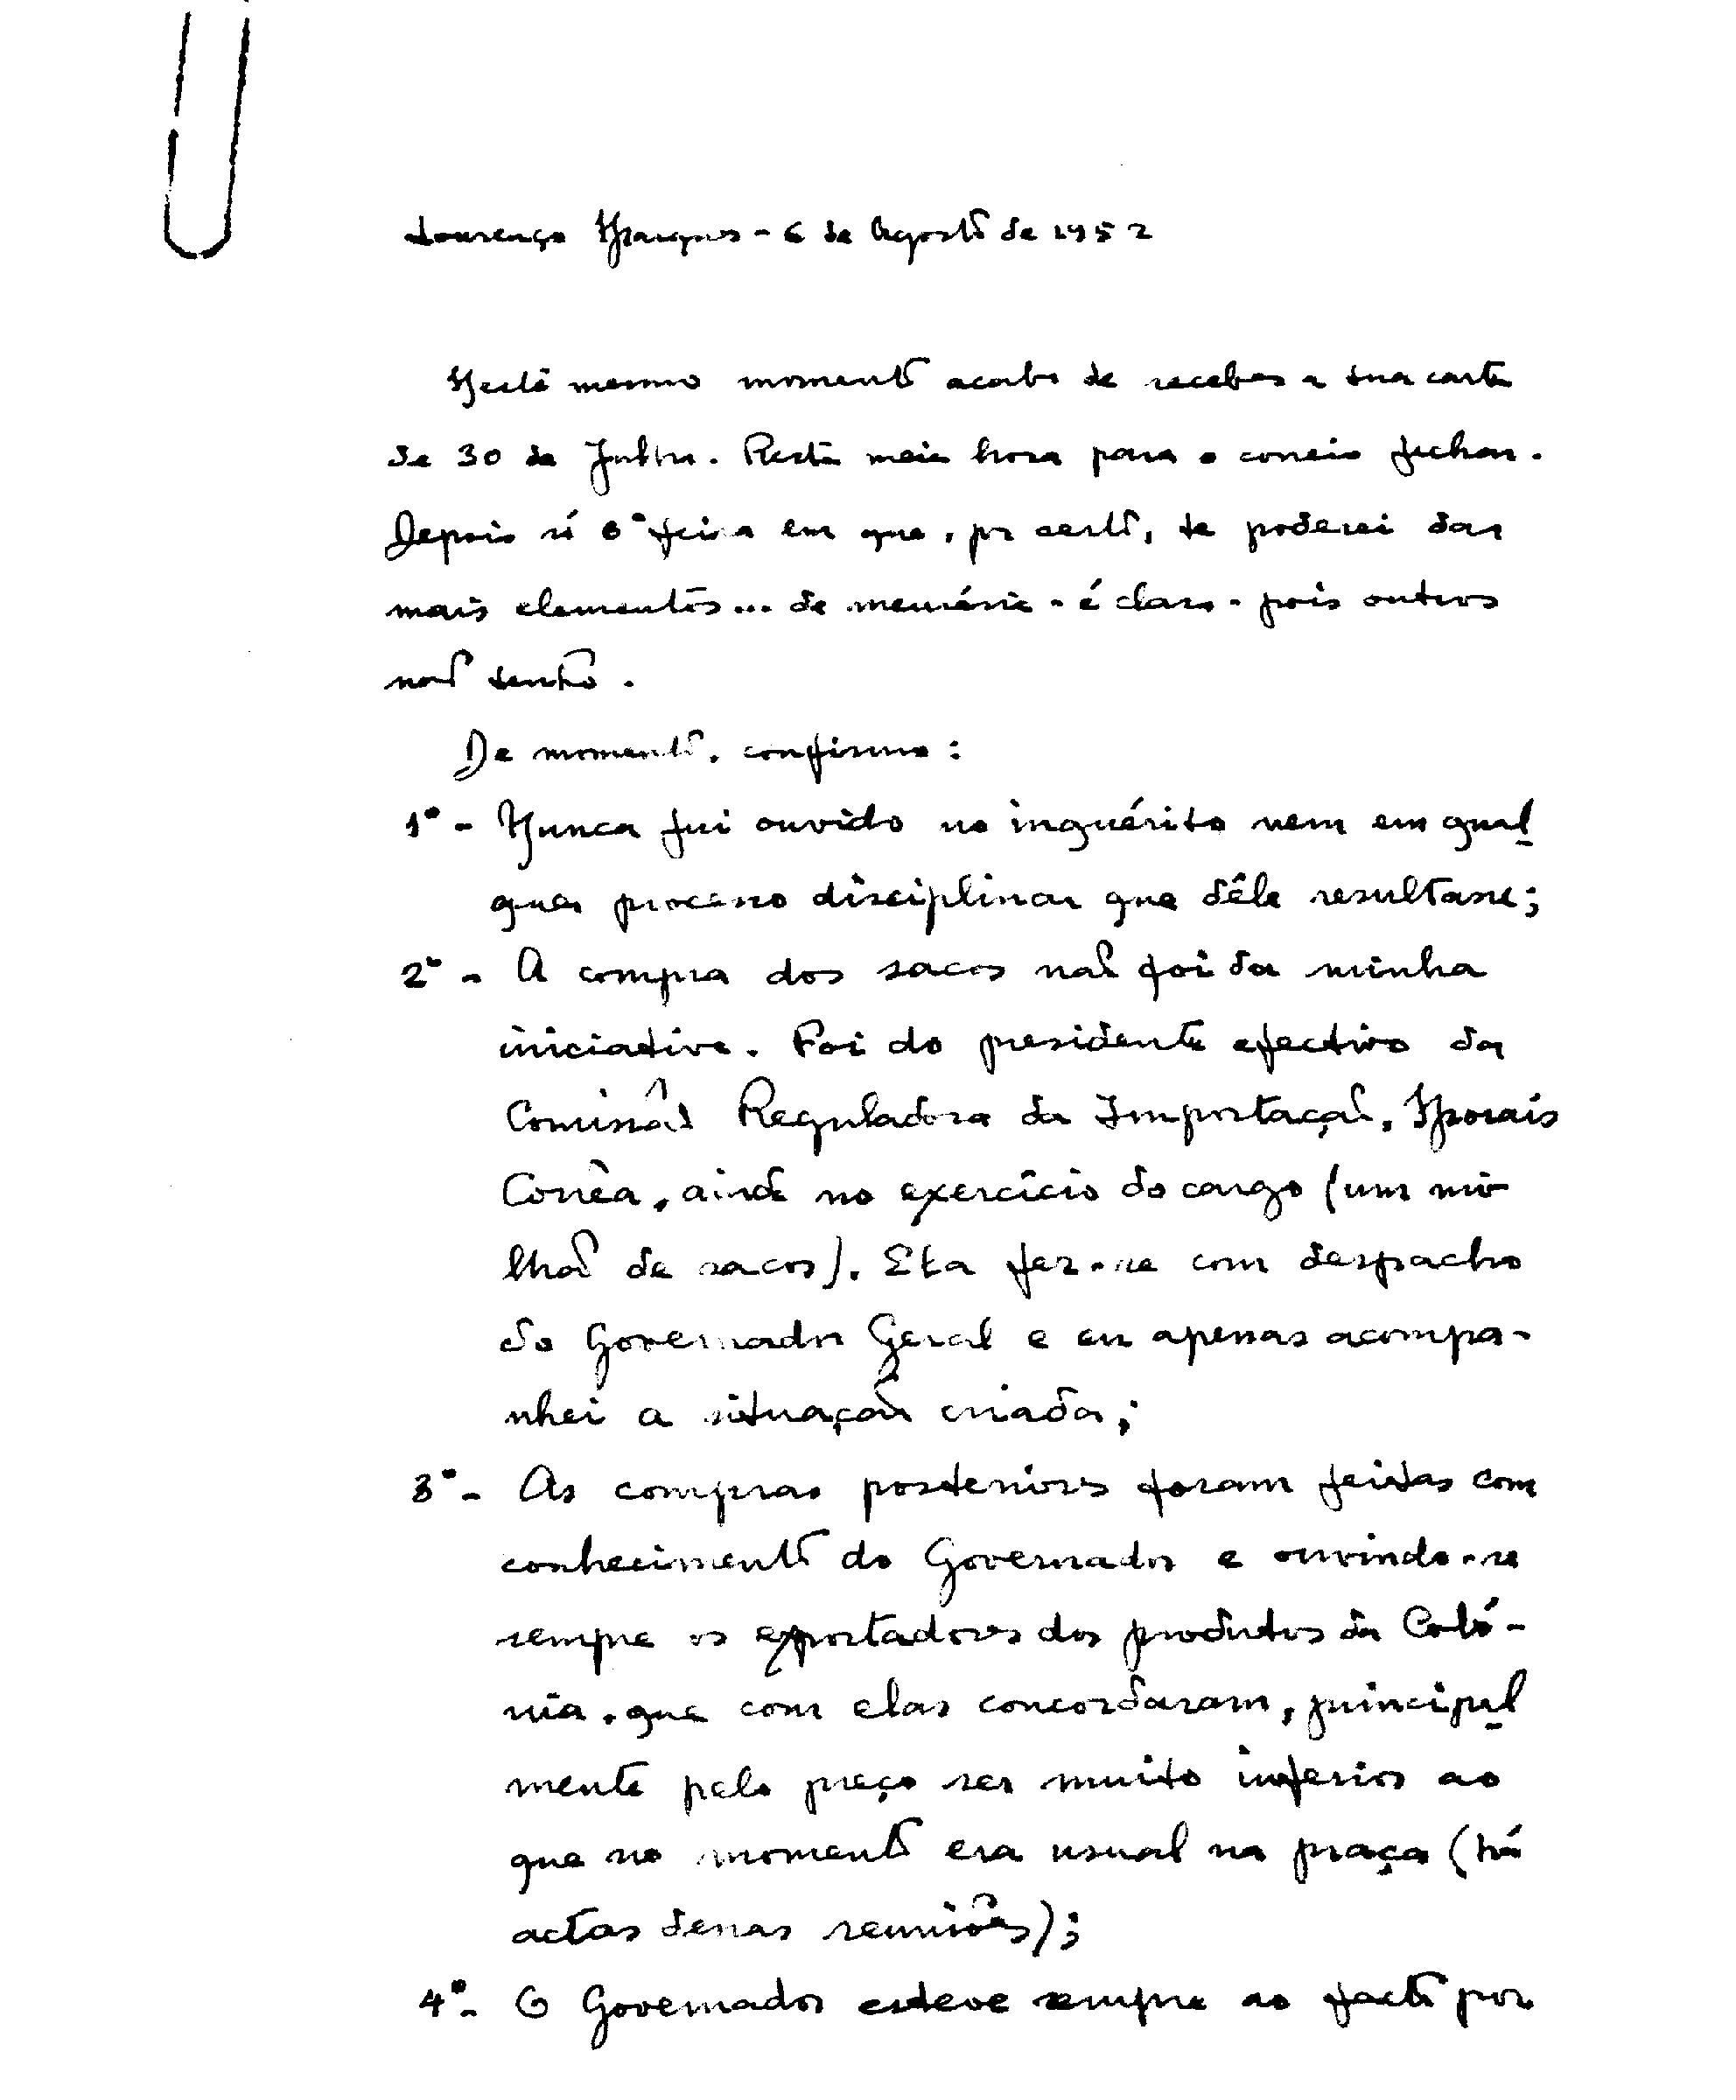 Lourenço Marques - 6 de Agosto de 1952
Neste mesmo momento acabo de receber a tua carta
de 30 de Julho. Resta meia hora para o correio fechar.
Depois só 6ª feira em que, por certo, te poderei dar
mais elementos... de memória - é claro - pois outros
não tenho.
De momento, confirmo:
1º - Nunca fui ouvido no inquérito nem em qual
quer processo disciplinar que dêle resultasse;
2º - A compra dos sacos não foi da minha
iniciativa. Foi do presidente efectivo da
Comissão Reguladora da Importação, Morais
Corrêa, ainda no exercício do cargo (um mi-
lhão de sacos). Ela fez-se com despacho
do Governador Geral e eu apenas acompa-
nhei a situação criada;
3º - As compras posteriores foram feitas com
conhecimento do Governador e ouvindo-se
sempre os exportadores dos produtos da Coló-
nia, que com elas concordaram, principal
mente pelo preço ser muito inferior ao
que no momento era usual na praça (há
actas dessas reuniões);
4º - O Governador esteve sempre ao facto por